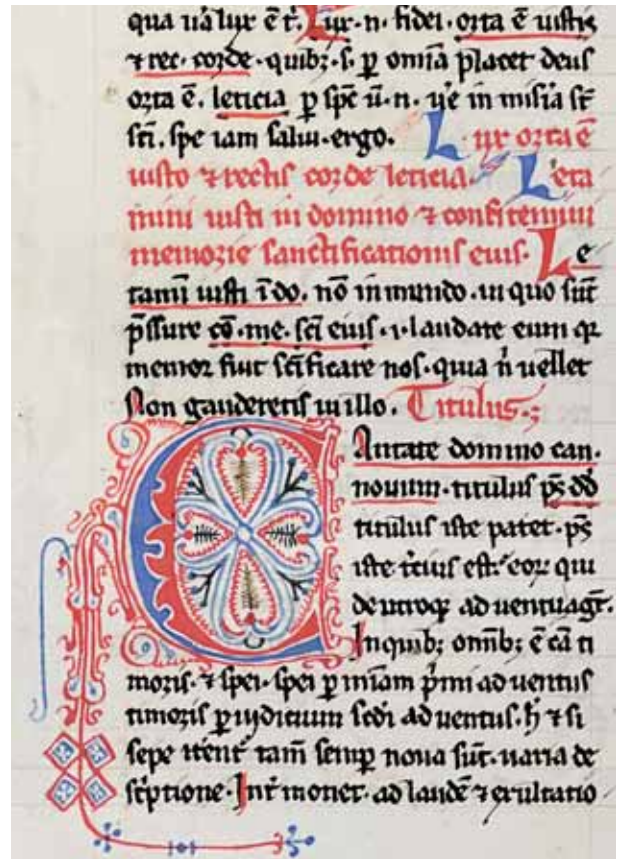 qua uia lux ē t᷑. Lux·n· fidei· orta ē iustis
⁊ rec· corde· quibꝫ·s· ꝑ omīa placet deus
orta ē. leticia ꝑ spē
sc̄i. spe iam salui·ergo. Lux orta ē
iusto ⁊ rectis corde leticia. Leta
mini iusti in domino ⁊ confitemini
memorie sanctificationis eius. Le
tamī iusti ī dō. nō in mundo· in quo sūt
p̄ssure cō· me· sc̄i eius·i·laudate eum qꝛ
memor fuit sc̄ificare nos·quia ñ uellet
Non gauderetis in illo. Titulus·
Cantate domino can·
nouum·titulus ps̄ dd
titulus iste patet·ps̄
iste t̄cius est· eoꝝ qui
de utroqꝫ aduentu agr̄.
In quibꝫ om̄ibꝫ ē cā ti
moris· ⁊ spei· spei ꝑ mīam p̄mi aduentus
timoris ꝑ iudicium sc̄di aduentus·h̄ ⁊ si
sepe tam̄ semꝑ noua sūt· uaria de
sc̄ptione·Int᷑ monet· ad laudē ⁊ exultatio